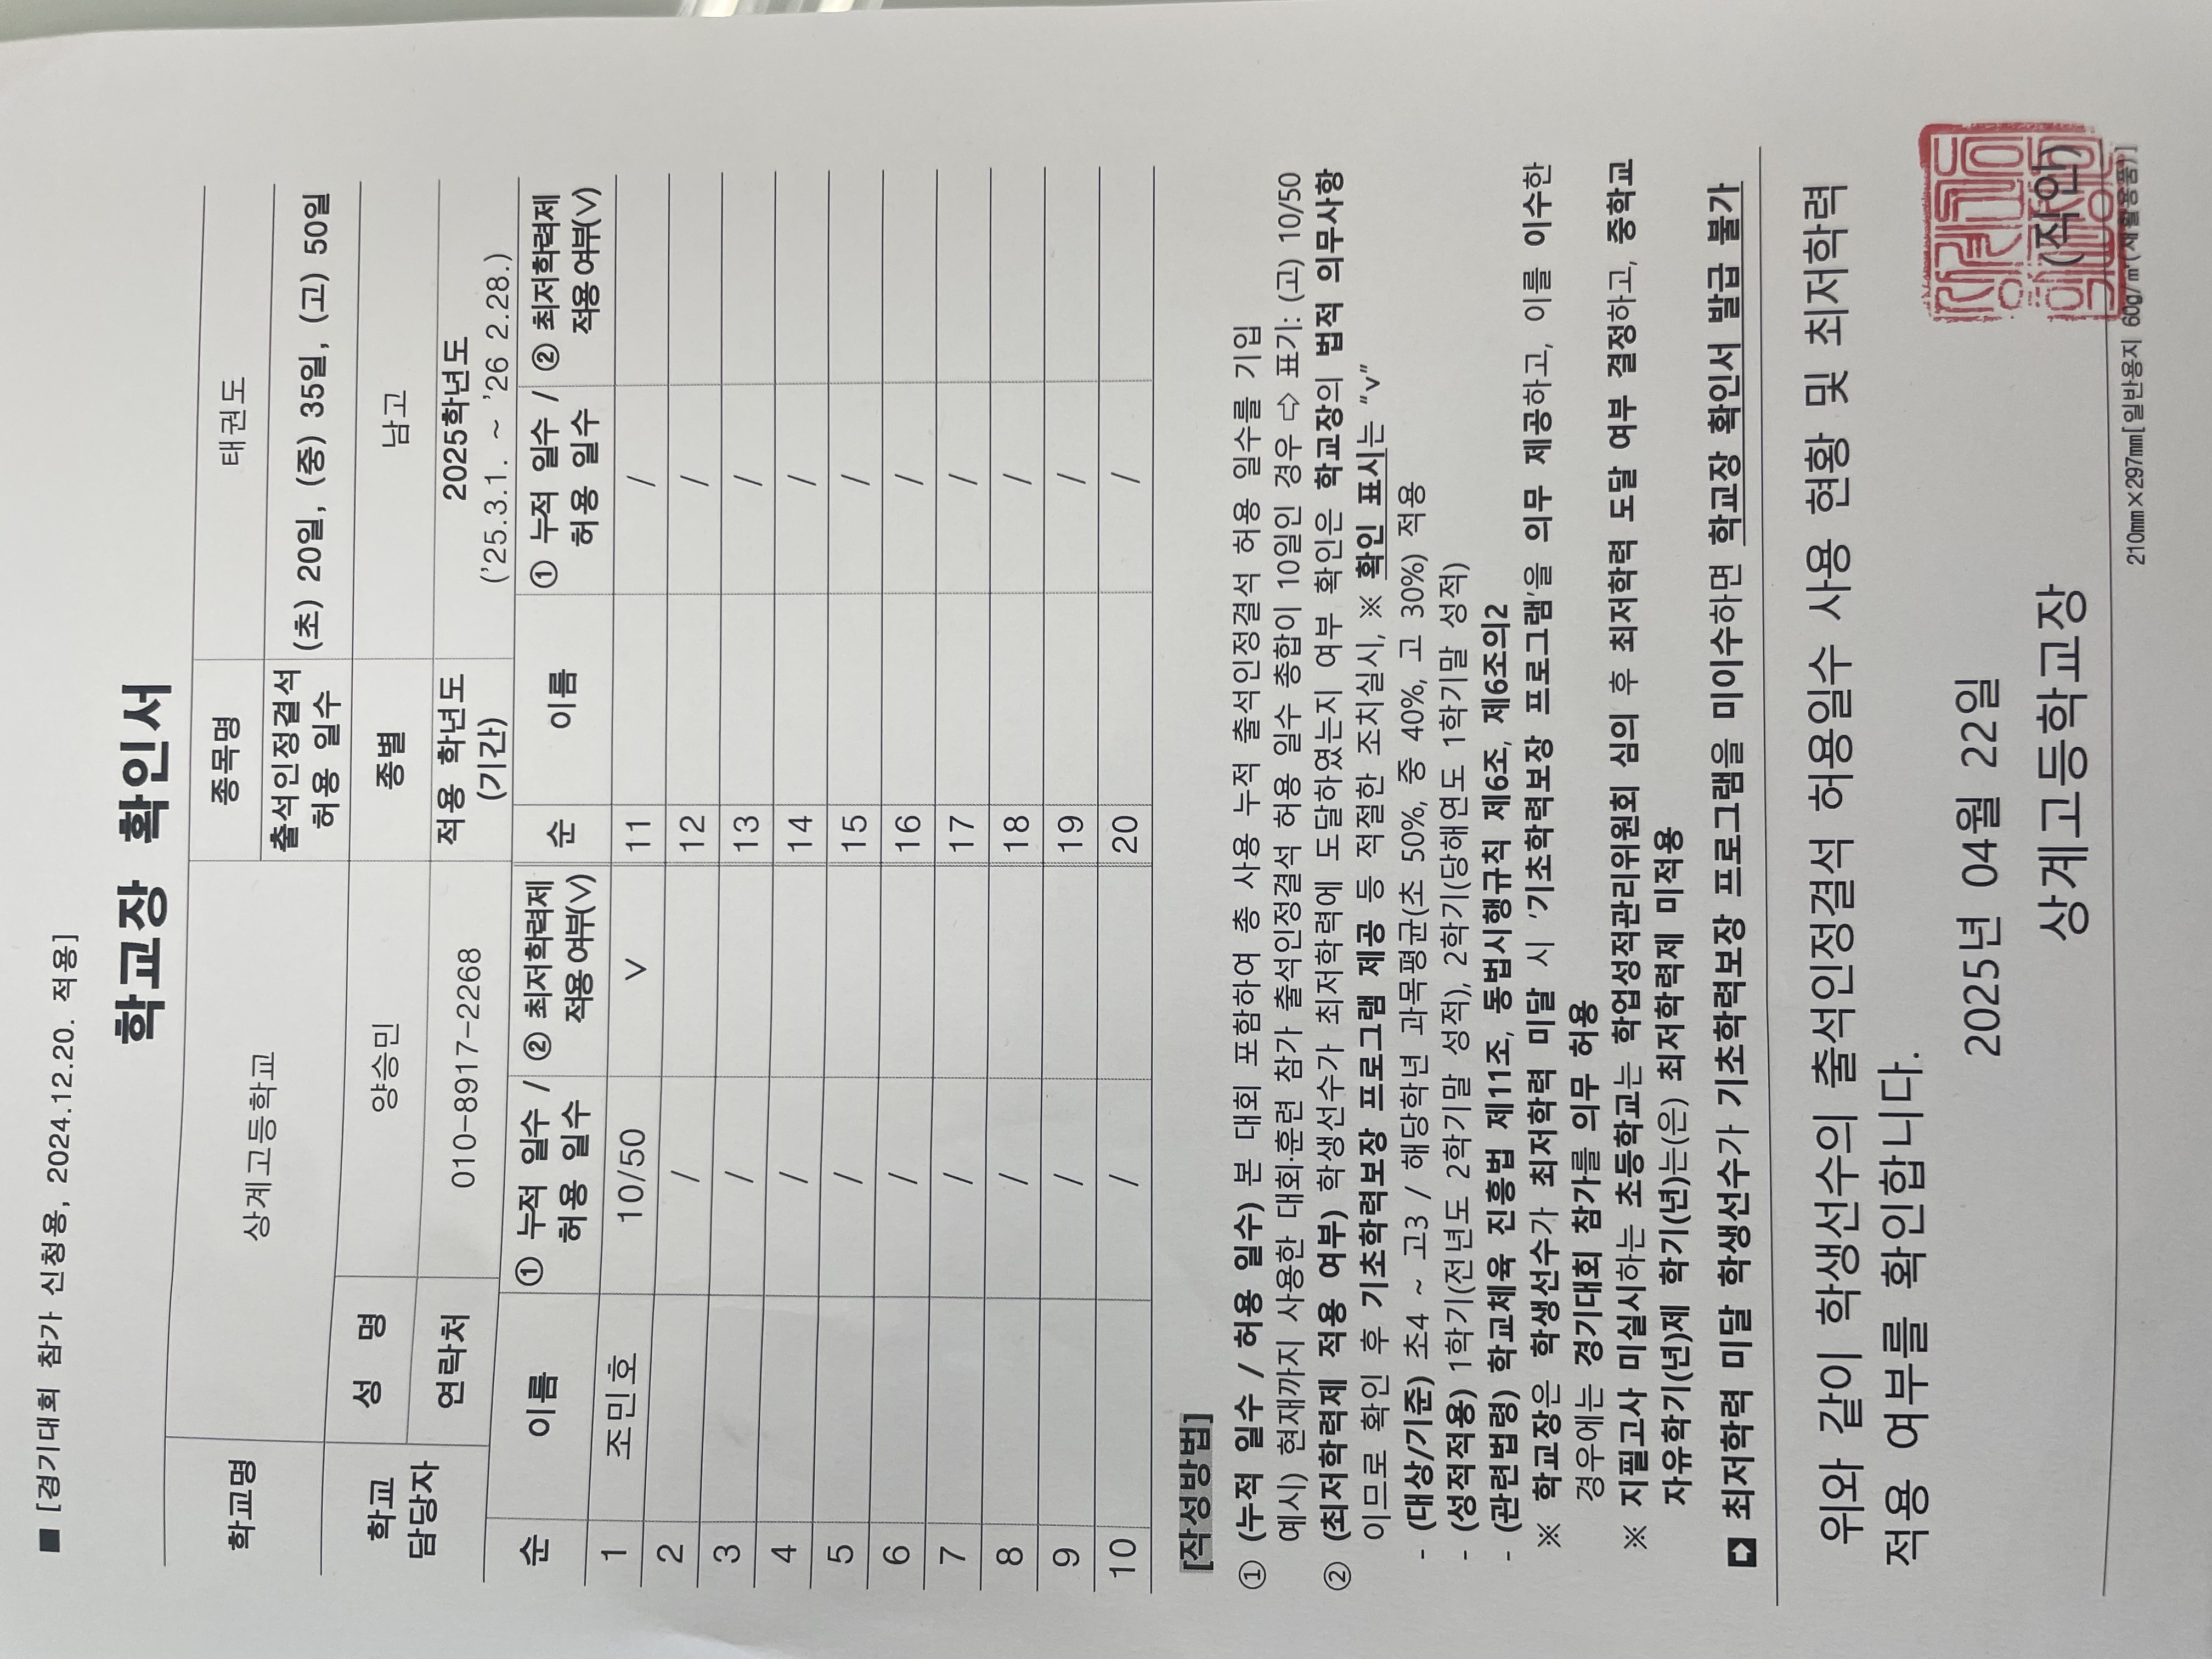 ■ [경기대회 참가 신청용, 2024.12.20. 적용]
학교장 확인서
학교명 상계고등학교 종목명 태권도
출석인정결석 허용 일수 (초) 20일, (중) 35일, (고) 50일
학교 담당자 성 명 양승민 종별 남고
연락처 010-8917-2268 적용 학년도 (기간) 2025학년도 ('25.3.1. ~ '26 2.28.)
순 이름 ① 누적 일수 / 허용 일수 ② 최저학력제 적용여부(∨) 순 이름 ① 누적 일수 / 허용 일수 ② 최저학력제 적용여부(∨)
1 조민호 10/50 ∨ 11 /
2 / 12 /
3 / 13 /
4 / 14 /
5 / 15 /
6 / 16 /
7 / 17 /
8 / 18 /
9 / 19 /
10 / 20 /
[작성방법]
① (누적 일수 / 허용 일수) 본 대회 포함하여 총 사용 누적 출석인정결석 허용 일수를 기입
예시) 현재까지 사용한 대회·훈련 참가 출석인정결석 허용 일수 총합이 10일인 경우 ⇨ 표기: (고) 10/50
② (최저학력제 적용 여부) 학생선수가 최저학력에 도달하였는지 여부 확인은 학교장의 법적 의무사항
이므로 확인 후 기초학력보장 프로그램 제공 등 적절한 조치실시, ※ 확인 표시는 “v”
- (대상/기준) 초4 ~ 고3 / 해당학년 과목평균(초 50%, 중 40%, 고 30%) 적용
- (성적적용) 1학기(전년도 2학기말 성적), 2학기(당해연도 1학기말 성적)
- (관련법령) 학교체육 진흥법 제11조, 동법시행규칙 제6조, 제6조의2
※ 학교장은 학생선수가 최저학력 미달 시 '기초학력보장 프로그램'을 의무 제공하고, 이를 이수한
경우에는 경기대회 참가를 의무 허용
※ 지필고사 미실시하는 초등학교는 학업성적관리위원회 심의 후 최저학력 도달 여부 결정하고, 중학교
자유학기(년)제 학기(년)는(은) 최저학력제 미적용
➡ 최저학력 미달 학생선수가 기초학력보장 프로그램을 미이수하면 학교장 확인서 발급 불가
위와 같이 학생선수의 출석인정결석 허용일수 사용 현황 및 최저학력
적용 여부를 확인합니다.
2025년 04월 22일
상계고등학교장 (직인)
210㎜×297㎜[일반용지 60g/㎡(재활용품)]